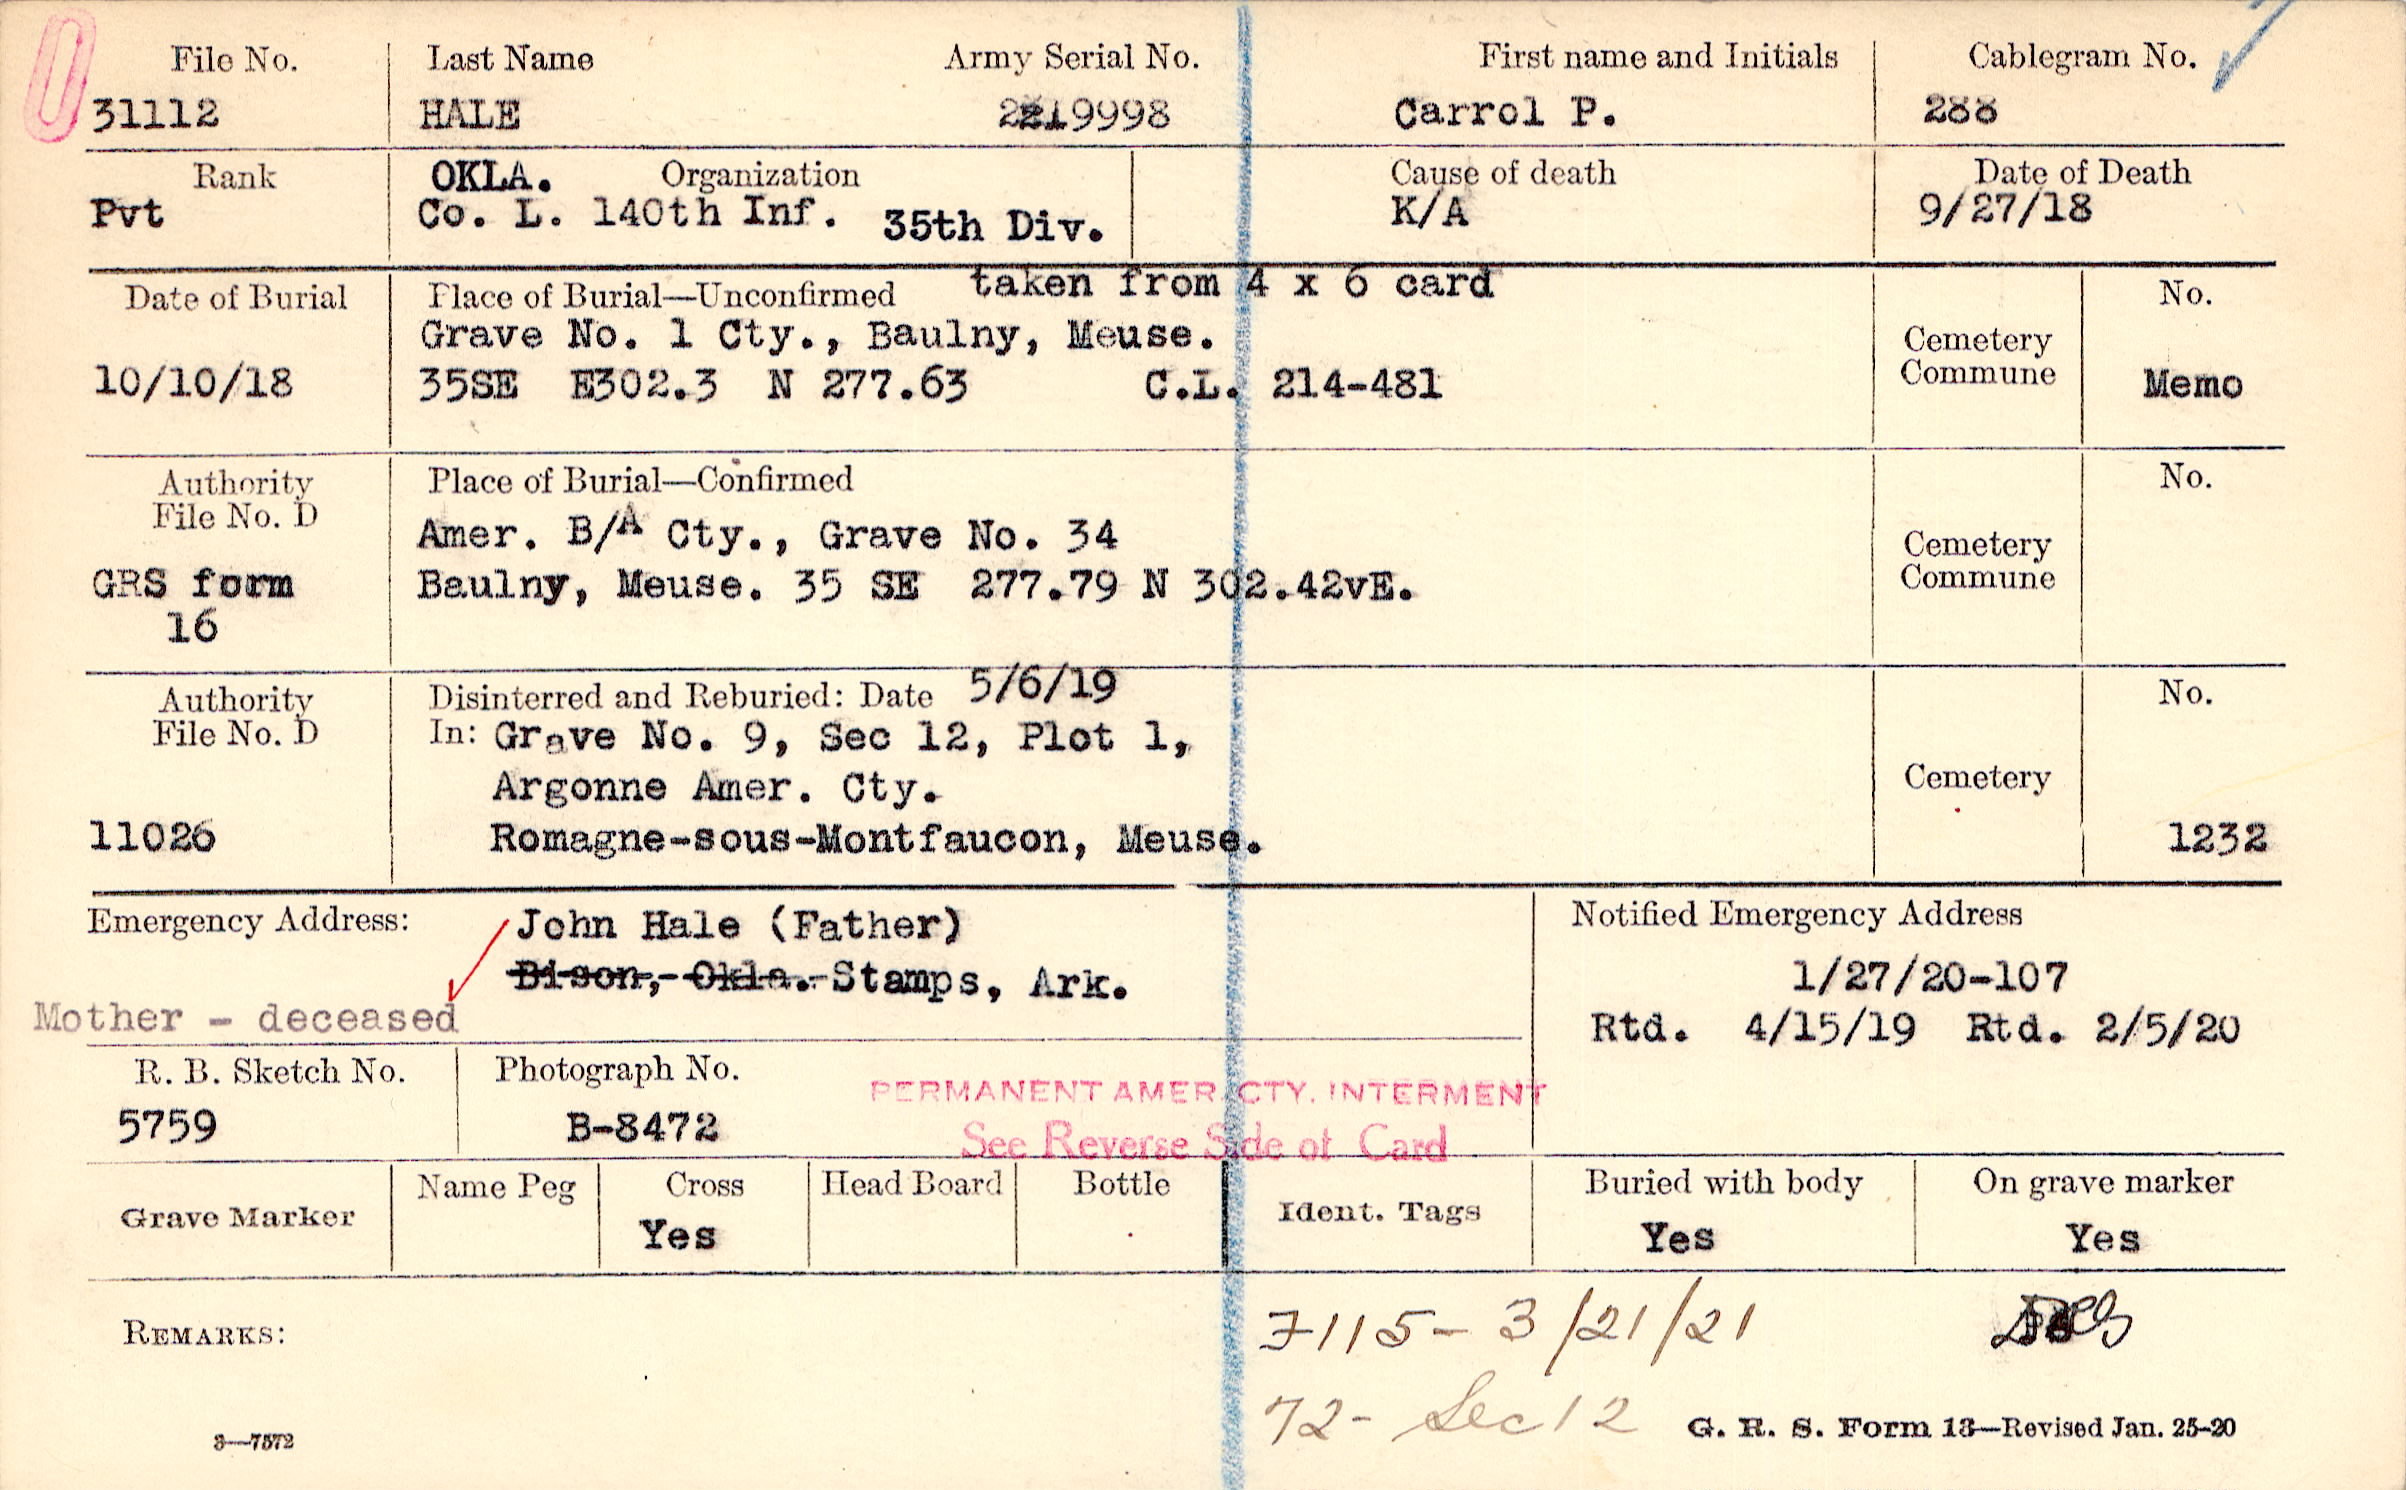 File No. Last Name Army Serial No. First name and Initials Cablegram No.
31112 HALE 2219998 Carrol P. 288
Rank OKLA. Organization Cause of death Date of Death
Pvt Co. L. 140th Inf. 35th Div. K/A 9/27/18
Date of Burial Place of Burial—Unconfirmed taken from 4 x 6 card No.
Grave No. 1 Cty., Baulny, Meuse. Cemetery
10/10/18 35SE E302.3 N 277.63 C.L. 214-481 Commune Memo
Authority Place of Burial—Confirmed No.
File No. D Amer. B/A Cty., Grave No. 34 Cemetery
GRS form Baulny, Meuse. 35 SE 277.79 N 302.42vE. Commune
16
Authority Disinterred and Reburied: Date 5/6/19 No.
File No. D In: Grave No. 9, Sec 12, Plot 1,
Argonne Amer. Cty. Cemetery
11026 Romagne-sous-Montfaucon, Meuse. 1232
Emergency Address: John Hale (Father) Notified Emergency Address
Bison, Okla. Stamps, Ark. 1/27/20-107
Mother - deceased Rtd. 4/15/19 Rtd. 2/5/20
R. B. Sketch No. Photograph No.
PERMANENT AMER. CTY. INTERMENT
5759 B-8472 See Reverse Side of Card
Grave Marker Name Peg Cross Head Board Bottle Ident. Tags Buried with body On grave marker
Yes Yes Yes
REMARKS: 7115- 3/21/21
72- Sec 12 G. R. S. Form 13—Revised Jan. 25-20
3—7572